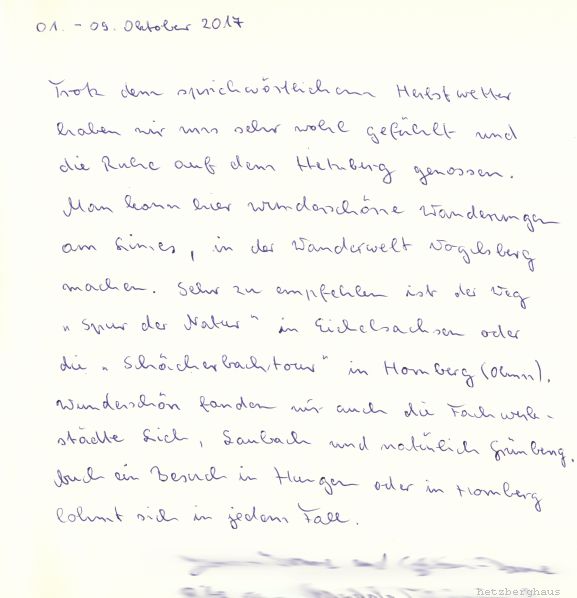 01. - 09. Oktober 2017
Trotz dem sprichwörtlichem Herbstwetter
haben wir uns sehr wohl gefühlt und
die Ruhe auf dem Hetzberg genossen.
Man kann hier wunderschöne Wanderungen
am Limes, in der Wanderwelt Vogelsberg
machen. Sehr zu empfehlen ist der Weg
"Spur der Natur" in Eichelsachsen oder
die "Schächerbachtour" in Homberg (Ohm).
Wunderschön fanden wir auch die Fachwerk-
städte Lich, Laubach und natürlich Grünberg.
Auch ein Besuch in Hungen oder in Homberg
lohnt sich in jedem Fall.
hetzberghaus